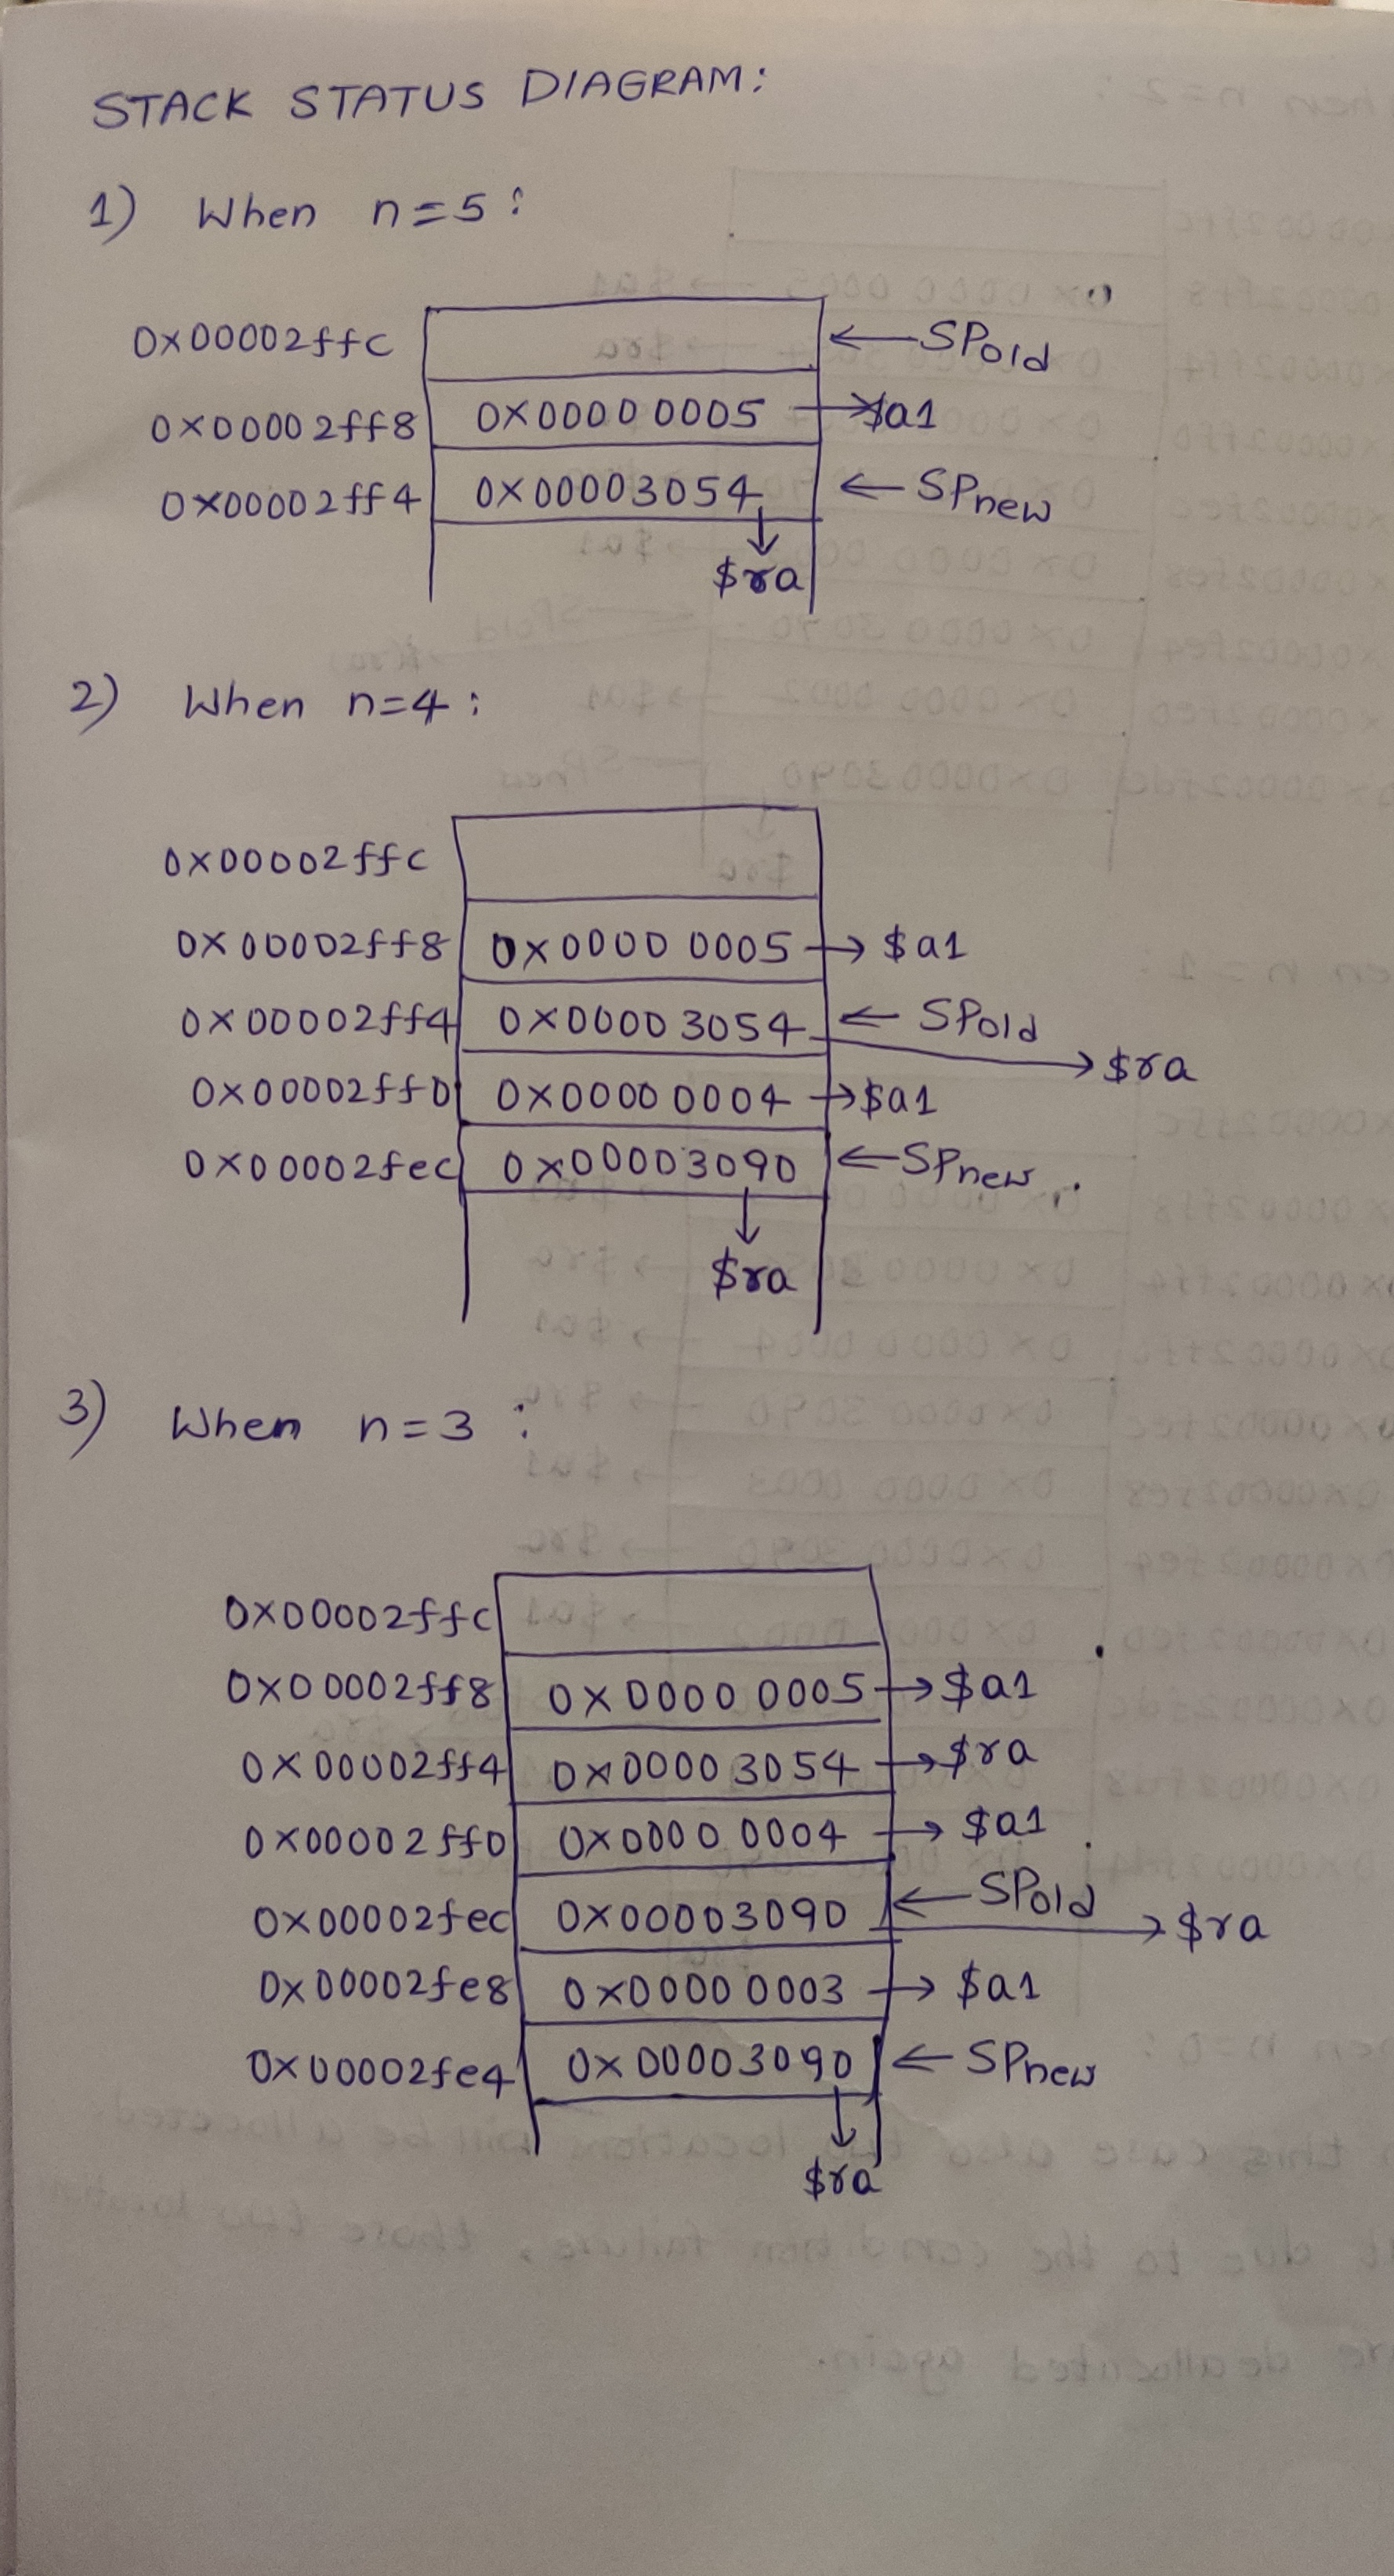 STACK STATUS DIAGRAM:
1) When n=5:
0x00002ffc ← SPold
0x00002ff8 0x00000005 → $a1
0x00002ff4 0x00003054 ← SPnew
↓
$ra
2) When n=4:
0x00002ffc
0x00002ff8 0x00000005 → $a1
0x00002ff4 0x00003054 ← SPold
→ $ra
0x00002ff0 0x00000004 → $a1
0x00002fec 0x00003090 ← SPnew
↓
$ra
3) When n=3:
0x00002ffc
0x00002ff8 0x00000005 → $a1
0x00002ff4 0x00003054 → $ra
0x00002ff0 0x00000004 → $a1
0x00002fec 0x00003090 ← SPold → $ra
0x00002fe8 0x00000003 → $a1
0x00002fe4 0x00003090 ← SPnew
↓
$ra